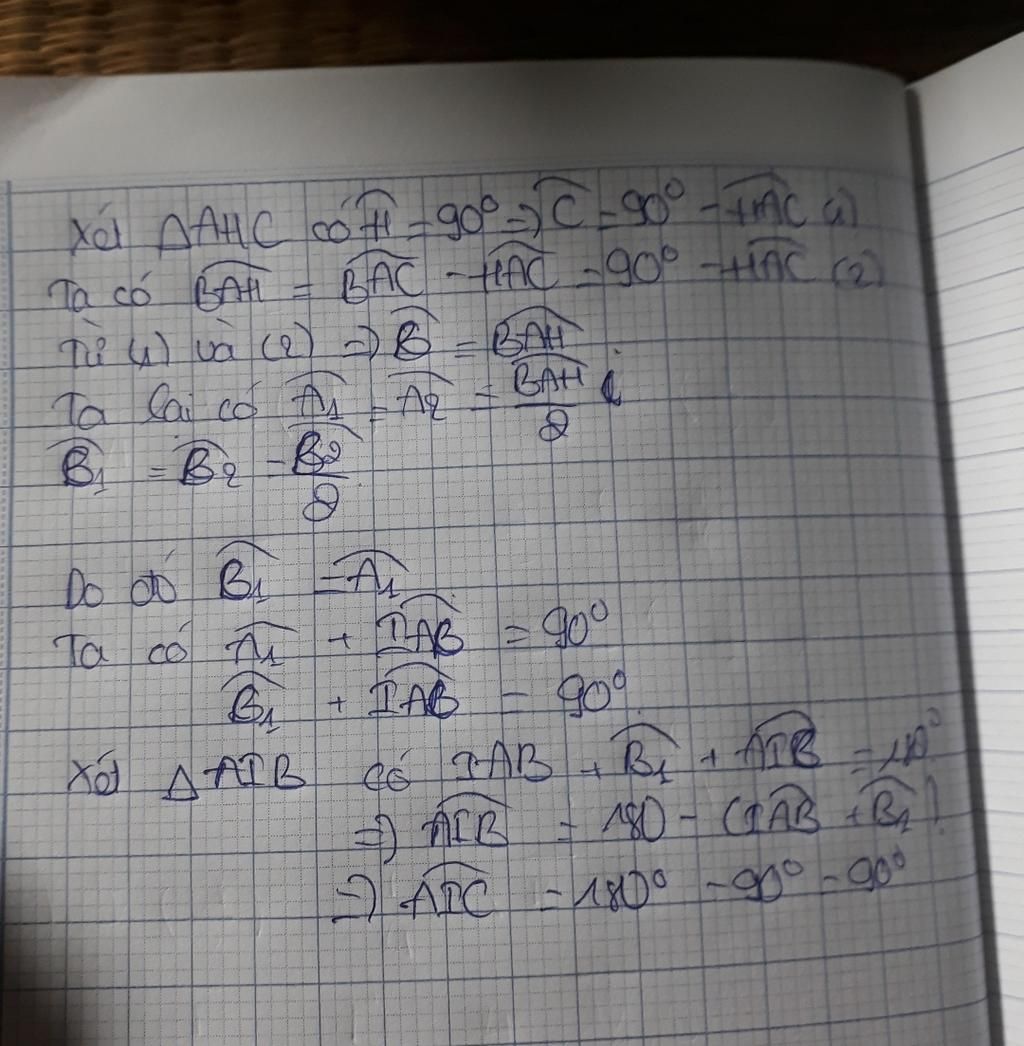 Xét ΔAHC có Ĥ = 90° => Ĉ = 90° - HAC (1)
Ta có BAH = BAC - HAC = 90° - HAC (2)
Từ (1) và (2) => B = BAH
Ta lại có A1 = A2 = BAH/2
B1 = B2 = B2/2
Do đó B1 = A1
Ta có A1 + IAB = 90°
B1 + IAB = 90°
Xét ΔAIB có IAB + B1 + AIB =
=> AIB = 180 - (IAB + B1)
=> AIC = 180° - 90° = 90°